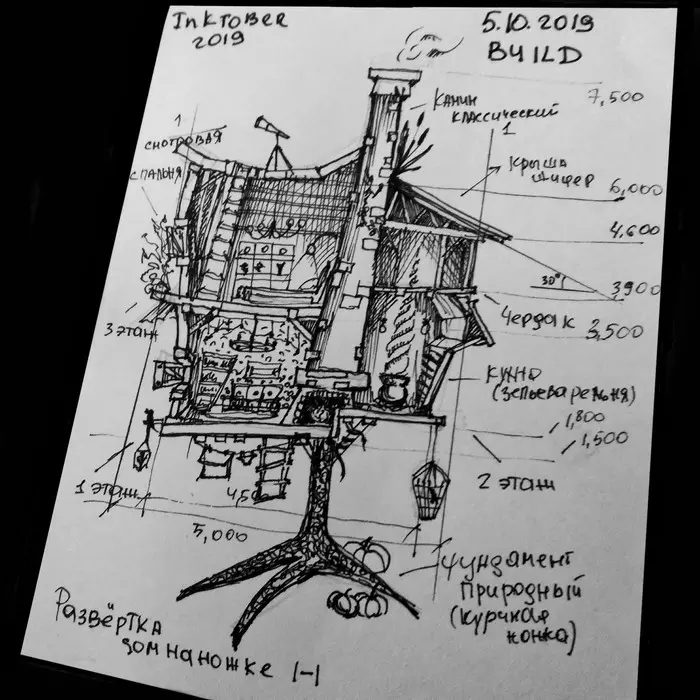 INKTOBER
2019
5.10.2019
BUILD
7,500
КАМИН
КЛАССИЧЕСКИЙ
1
1
СМОТРОВАЯ
КРЫША
ШИФЕР
СПАЛЬНЯ
6,000
4,600
30°
3,900
ЧЕРДАК
3,500
3 ЭТАЖ
КУХНЯ
(ЗЕЛЬЕВАРЕЛЬНЯ)
1,800
1,500
2 ЭТАЖ
1 ЭТАЖ
4,50
5,000
ФУНДАМЕНТ
ПРИРОДНЫЙ
(КУРИНАЯ
НОЖКА)
РАЗВЁРТКА
ДОМ НА НОЖКЕ 1-1